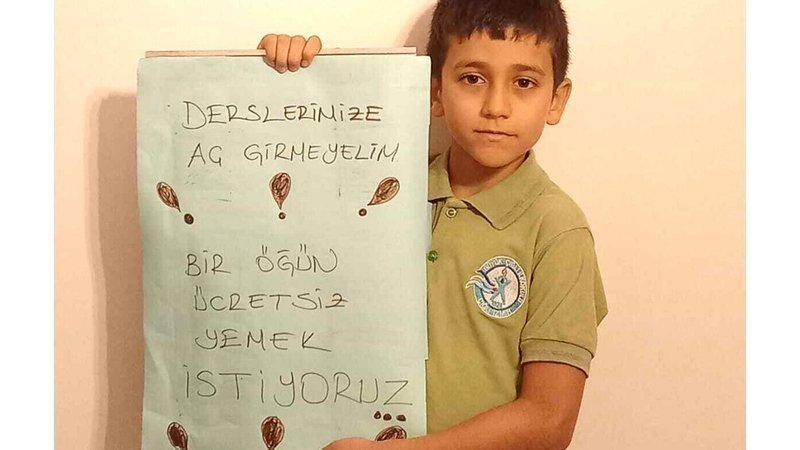 DERSLERİMİZE
AÇ GİRMEYELİM
! ! !
BİR ÖĞÜN
ÜCRETSİZ
YEMEK
İSTİYORUZ
...
! ! !